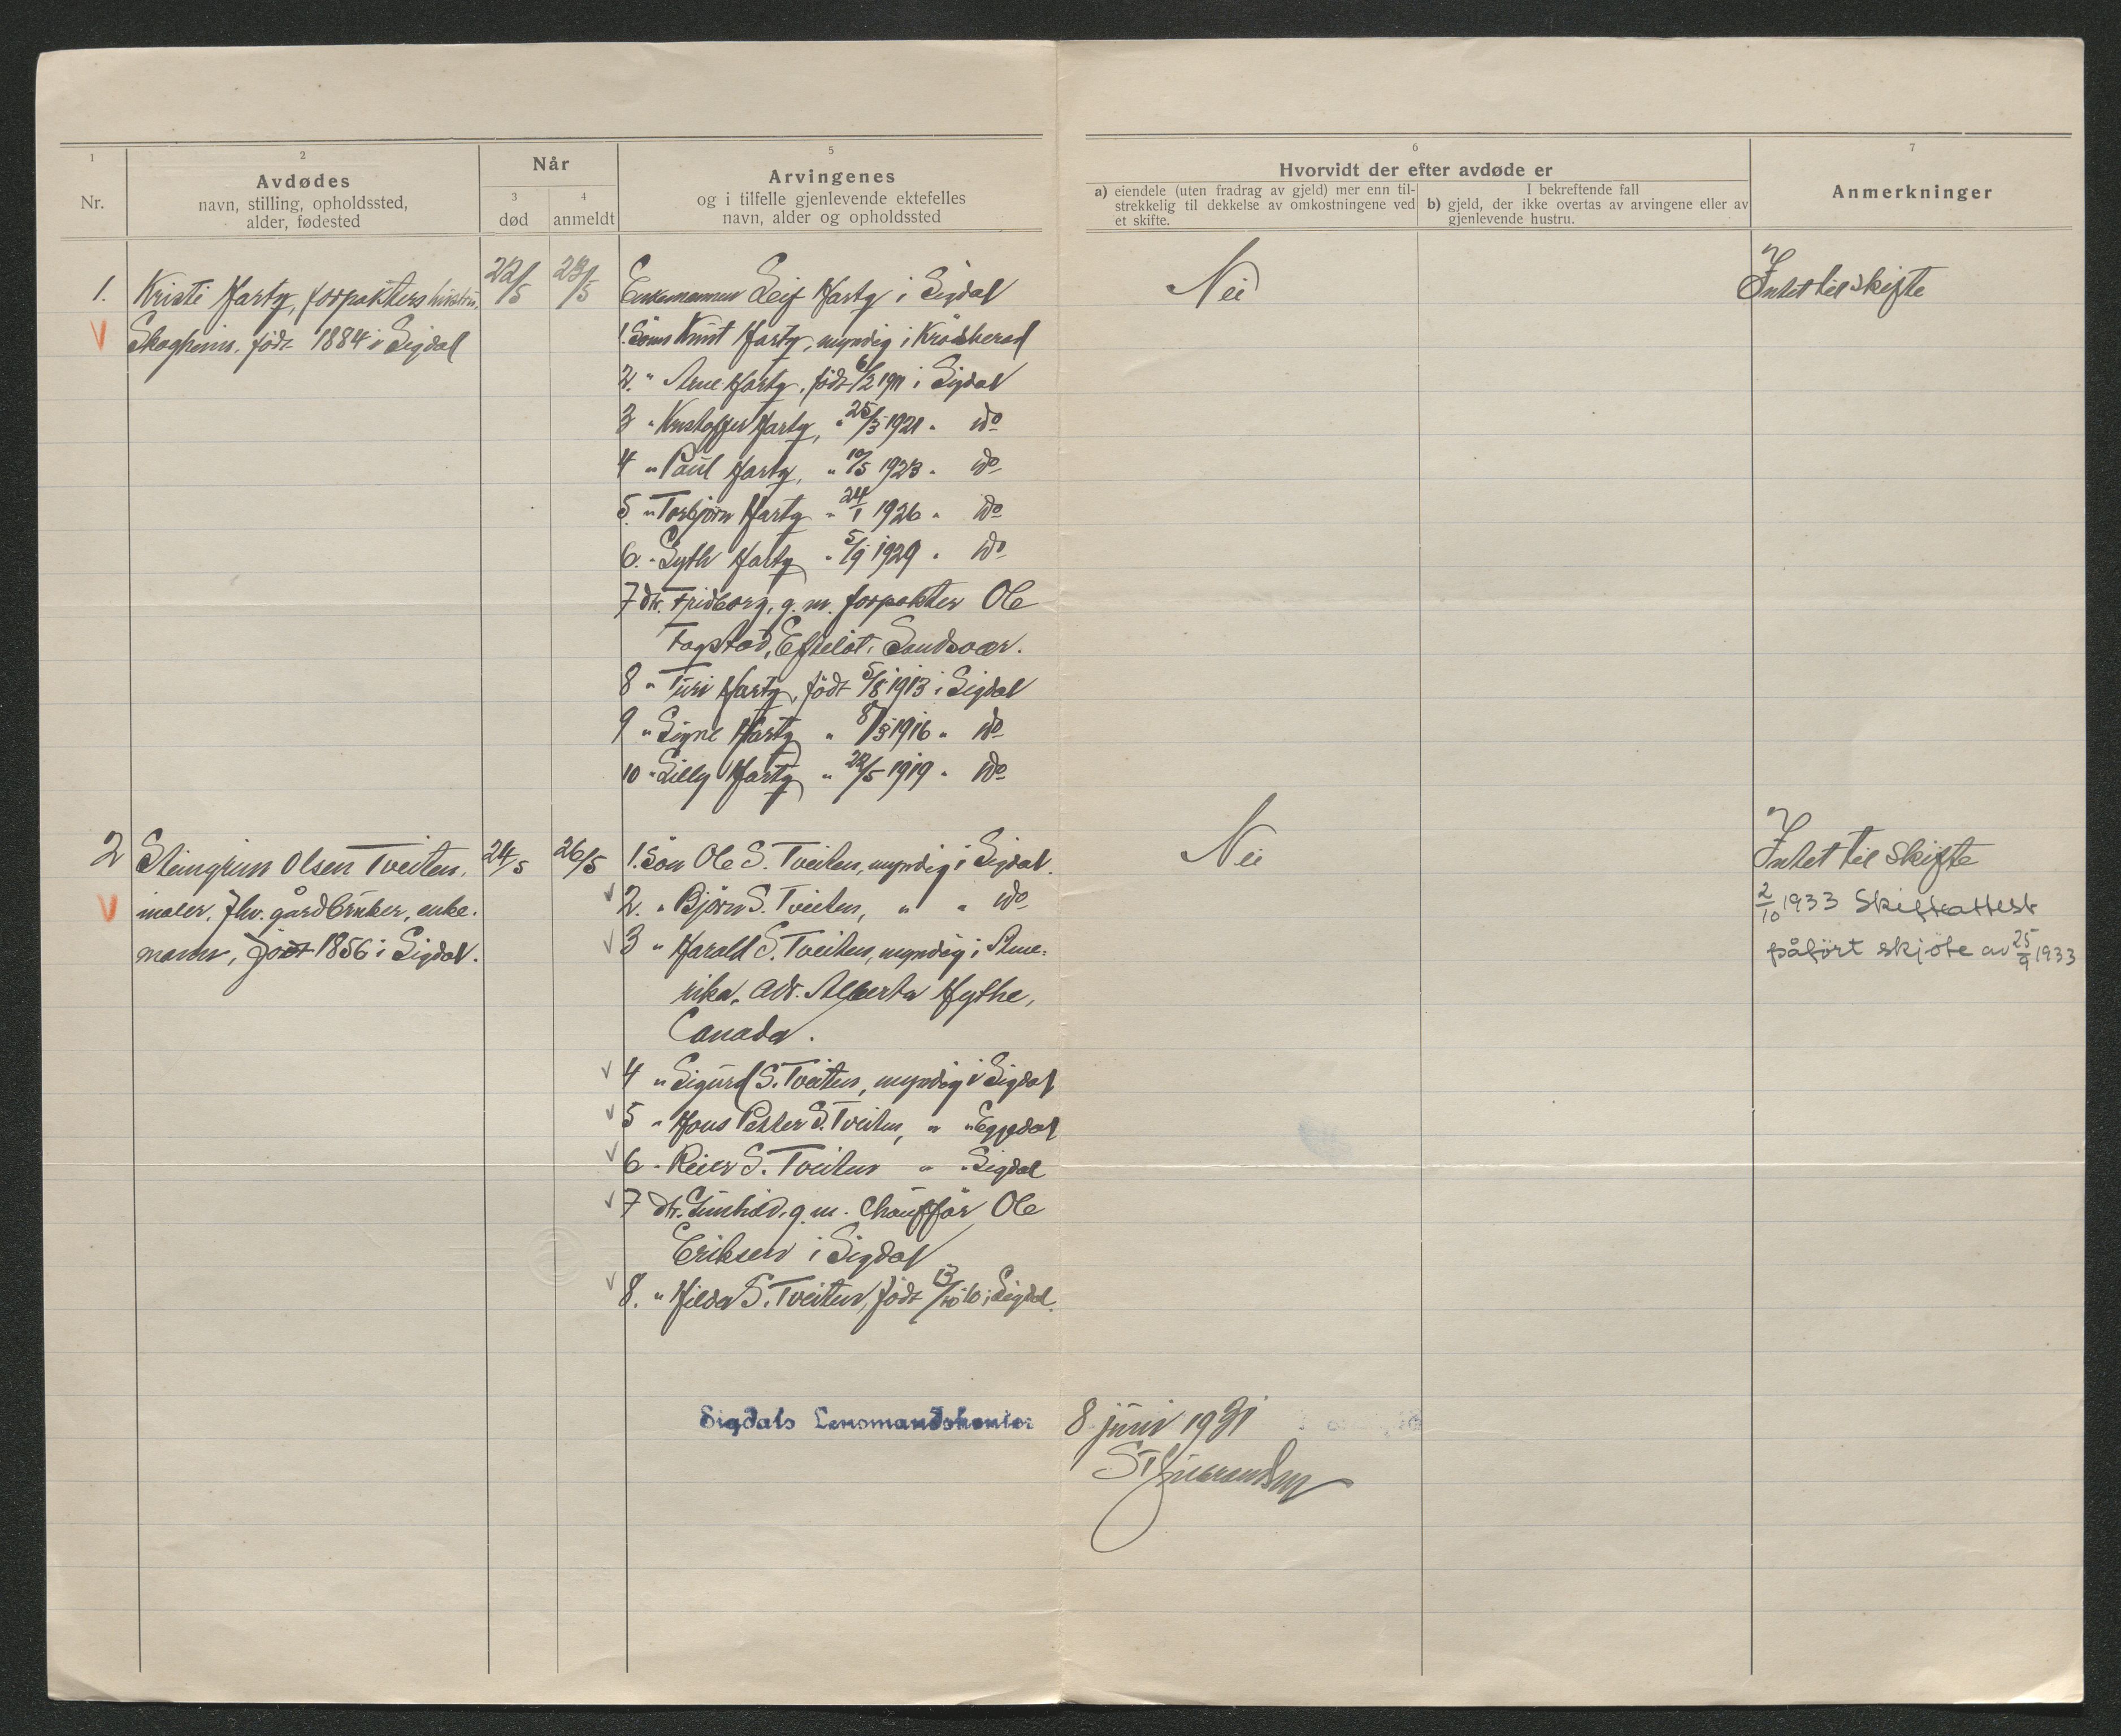 1
Nr.
2
Avdødes
navn, stilling, opholdssted,
alder, fødested
Når
3
død
4
anmeldt
5
Arvingenes
og i tilfelle gjenlevende ektefelles
navn, alder og opholdssted
6
Hvorvidt der efter avdøde er
a) eiendele (uten fradrag av gjeld) mer enn til-
strekkelig til dekkelse av omkostningene ved
et skifte.
I bekreftende fall
b) gjeld, der ikke overtas av arvingene eller av
gjenlevende hustru.
7
Anmerkninger
1. Kristi Harty, forpakters hustru,
Skogheim, født 1884 i Sigdal
22/5 23/5
Enkemannen Leif Harty i Sigdal
1. Sönn Knut Harty, myndig i Krödsherad
2. " Arne Harty, födt 6/2 1911 i Sigdal
3 " Kristoffer Harty, " 25/3 1921 " do
4 " Paul Harty, " 10/5 1923 " do
5. " Torbjørn Harty " 24/1 1926 " do
6. " Lyth Harty " 5/9 1929 " do
7 dtr. Fridborg, g. m. forpakter Ole
Fogstad, Efteløt, Sandsvær.
8 " Turi Harty, födt 5/8 1913 i Sigdal
9 " Signe Harty " 8/3 1916 " do
10 " Lilly Harty " 22/5 1919 " do
Nei
Intet til skifte
2 Steingrim Olsen Tveiten,
maler, fhv. gårdbruker, enke-
mann, födt 1856 i Sigdal.
24/5 26/5
1. Sön Ole S. Tveiten, myndig i Sigdal.
2. " Bjørn S. Tveiten, " " do
3 " Harald S. Tveiten, myndig i Ame-
rika, adr. Alberta Hythe,
Canada.
4 " Sigurd S. Tveiten, myndig i Sigdal
5 " Hans Petter S. Tveiten, " " Eggedal
6 " Reier S. Tveiten " " Sigdal
7 dtr. Gunhild, g. m. Chauffør Ole
Eriksen i Sigdal
8. " Hilda S. Tveiten, födt 13/10 10 i Sigdal.
Nei
Intet til skifte
2/10 1933 Skifteattest
påført skjöte av 25/9 1933
Sigdals Lensmandskontor 8 juni 1931